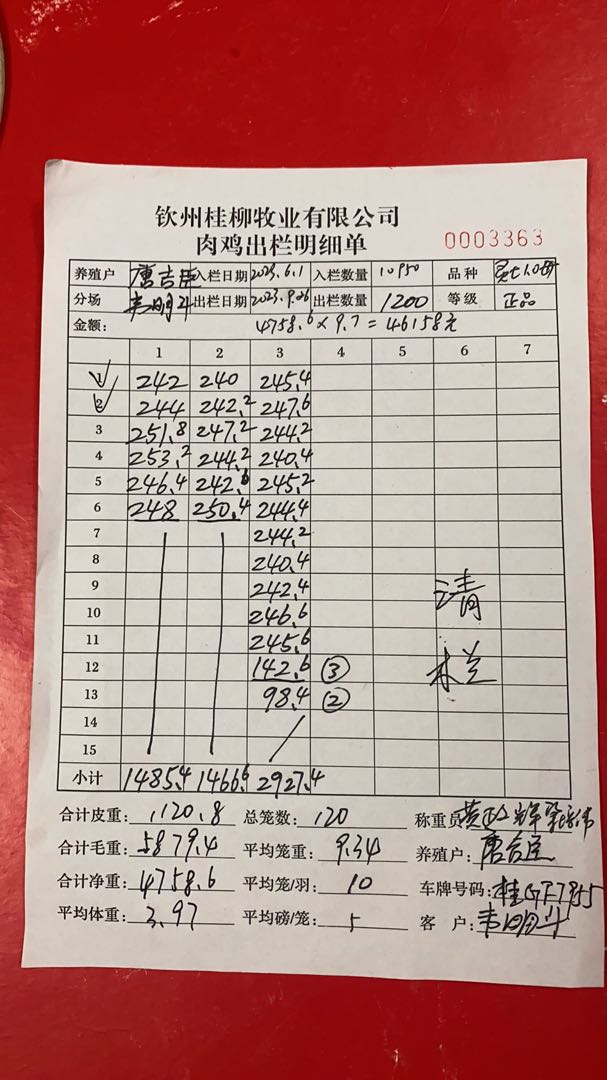 钦州桂柳牧业有限公司
肉鸡出栏明细单
0003363
养殖户 唐吉臣 入栏日期 2023.6.1 入栏数量 10950 品种
分场 韦明斗 出栏日期 2023.9.26 出栏数量 1200 等级 正品
金额: 4758.6×9.7=46158元
1 2 3 4 5 6 7
1 242 240 245.4
2 244 242.2 247.6
3 251.8 247.2 244.2
4 253.2 244.2 240.4
5 246.4 242.6 245.2
6 248 250.4 244.4
7 244.2
8 240.4
9 242.4 清
10 246.6
11 245.6
12 142.6 ③ 栏
13 98.4 ②
14
15
小计 1485.4 1466.6 2927.4
合计皮重: 1120.8 总笼数: 120 称重员
合计毛重: 5879.4 平均笼重: 9.34 养殖户: 唐吉臣
合计净重: 4758.6 平均笼/羽: 10 车牌号码: 桂GT7955
平均体重: 3.97 平均磅/笼: 5 客 户: 韦明斗